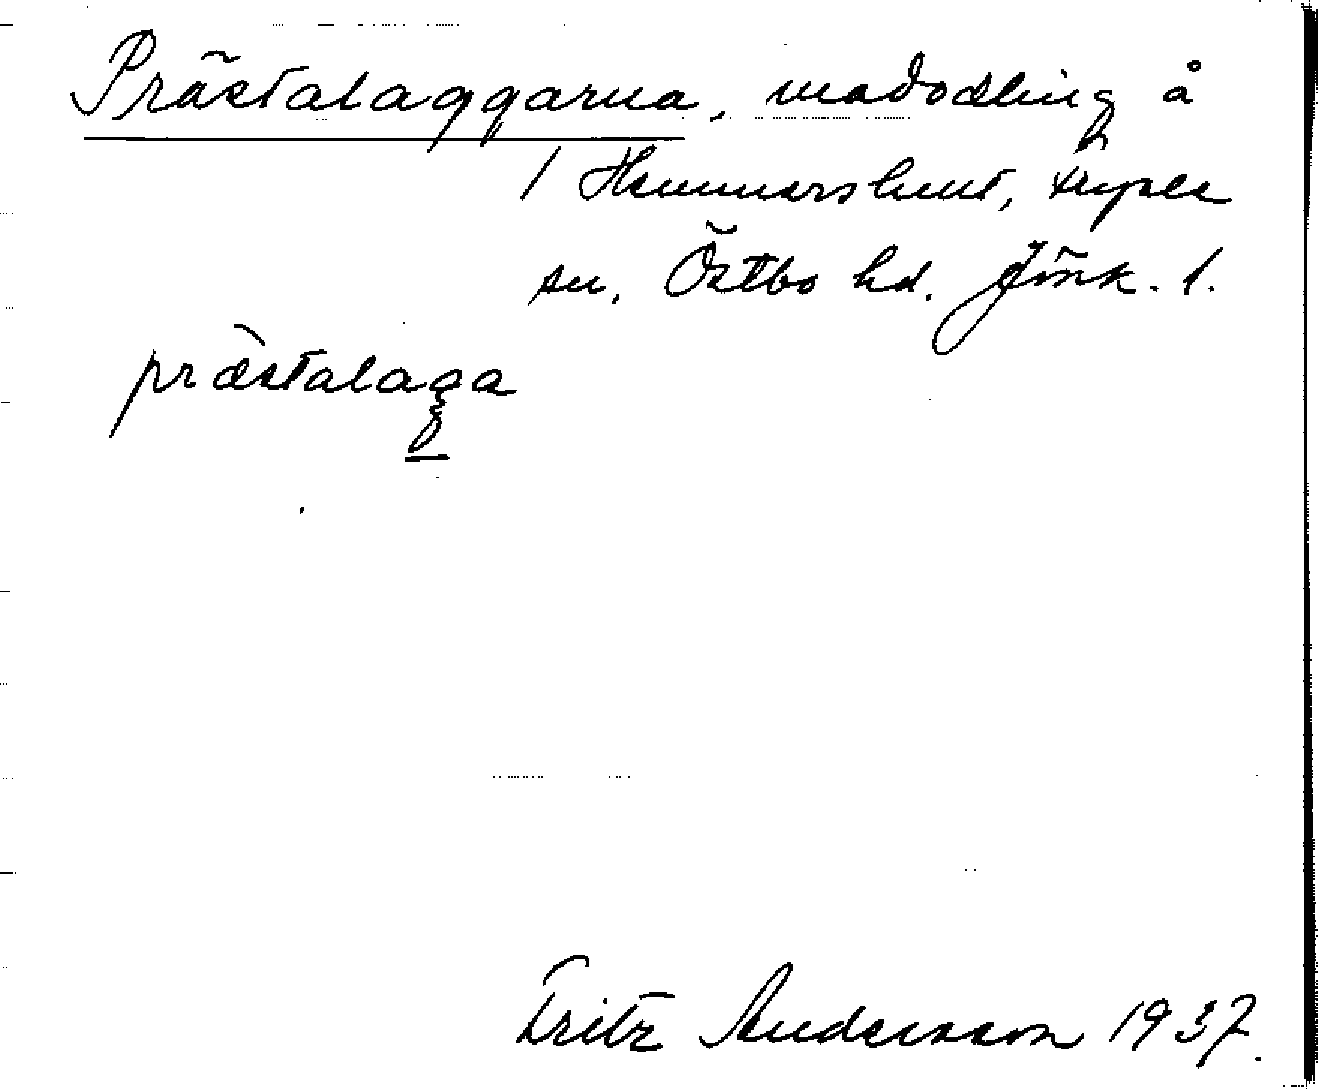 Prästalaggarna, madodling å
1 Hammarslund, Rydaholms
sn, Östbo hd. Jönk. l.
præstalaga
Fritz Andersson 1937.